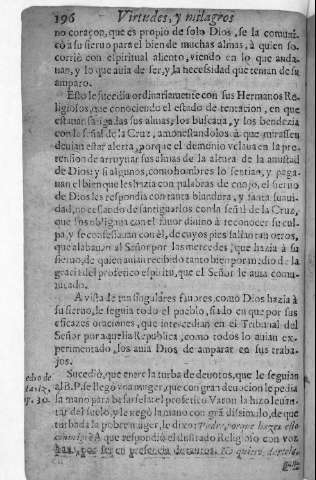 196 Virtudes, y milagros
no coraçon, que es propio de solo Dios, se la comuni
có a su sieruo para el bien de muchas almas, à quien so-
corriò con espiritual aliento, viendo en lo que anda-
uan, y lo que auia de ser, y la necessidad que tenian de su
amparo.
Esto le sucedia ordinariamente con sus Hermanos Re-
ligiosos, que conociendo el estado de tentacion, en que
estauan las almas, los buscaua, y los bendezia
con la señal de la Cruz, amonestandolos à que mirassen
deuian estar alerta, porque el demonio velaua en la pre-
tension de arruynar sus almas de la altura de la amistad
de Dios: y si algunos, como hombres lo sentian, y paga-
uan el bien que les hazia con palabras de enojo, el sieruo
de Dios les respondia con tanta blandura, y tanta suaui-
dad, no cessando de santiguarlos con la señal de la Cruz,
que los obligaua con el fauor diuino à reconocer su cul-
pa, y se confessauan con èl, de cuyos pies salian tan otros,
que alabauan al Señor por las mercedes, que hazia à su
sieruo, de quien auian recibido tanto bien por medio de la
gracia del profetico espiritu, que el Señor le auia comu-
nicado.
A vista de tan singulares fauores, como Dios hazia à
su sieruo, le seguia todo el pueblo, fiado en que por sus
eficazes oraciones, que intercedian en el Tribunal del
Señor por aquella Republica, como todos lo auian ex-
perimentado, los auia Dios de amparar en sus traba-
jos.
Sucediò, que entre la turba de deuotos, que le seguian
al B. P. se llegò vna muger, que con gran deuocion le pedia
la mano para besarsela: el profetico Varon la hizo leuan-
tar del suelo, y le negò la mano con grã dissimulo, de que
turbada la pobre muger, le dixo: Padre, porque hazes esto
conmigo? A que respondiò el ilustrado Religioso con voz
baxa, por ser en presencia de tantos. No quiero, dartela,